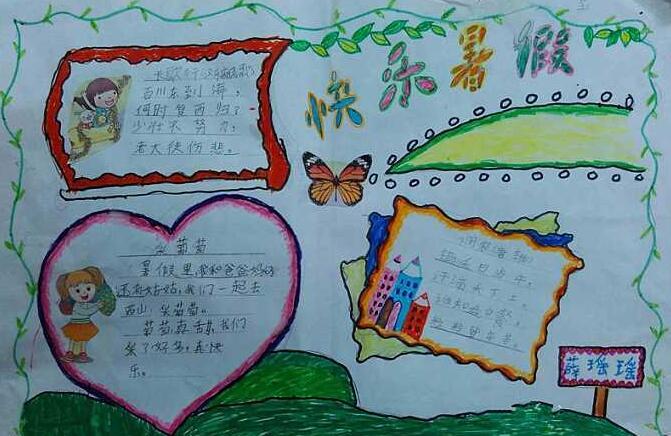 快乐暑假
长歌行
百川东到海，
何时复西归？
少壮不努力，
老大徒伤悲。
采葡萄
暑假里，我和爸爸妈妈
还有姑姑，我们一起去
西山采葡萄。
葡萄真甜，我们
采了好多，真快
乐。
锄禾日当午，
汗滴禾下土，
谁知盘中餐，
粒粒皆辛苦。
薛瑶瑶